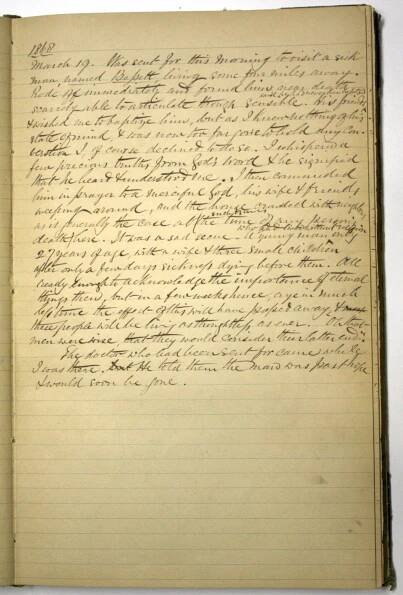 1868
March 19. Was sent for this morning to visit a sick
man named Bassett, living some four miles away.
Rode off immediately and found him near death
scarcely able to articulate though sensible. His friends
wished me to baptize him, but as I knew nothing of his
state of mind & was now too far gone to hold any con-
versation I, of course declined to do so. I whispered a
few precious truths from God's word & he signified
that he heard & understood me. I then commended
him in prayer to a merciful God, his wife & friends
weeping around, and the house crowded with neighbors
as is generally the case at the time of any person's
death here. It was a sad scene. A young man only
27 years of age, with a wife & three small children
after only a few days sickness dying before them. All
ready enough to acknowledge the importance of eternal
things then, but in a few weeks hence, aye in much
less time the effect of this will have passed away, &
these people will be living as thoughtless as ever. Oh that
men were wise, that they would consider their latter end.
The doctor who had been sent for came while
I was there. But He told them the man was past hope
& would soon be gone.